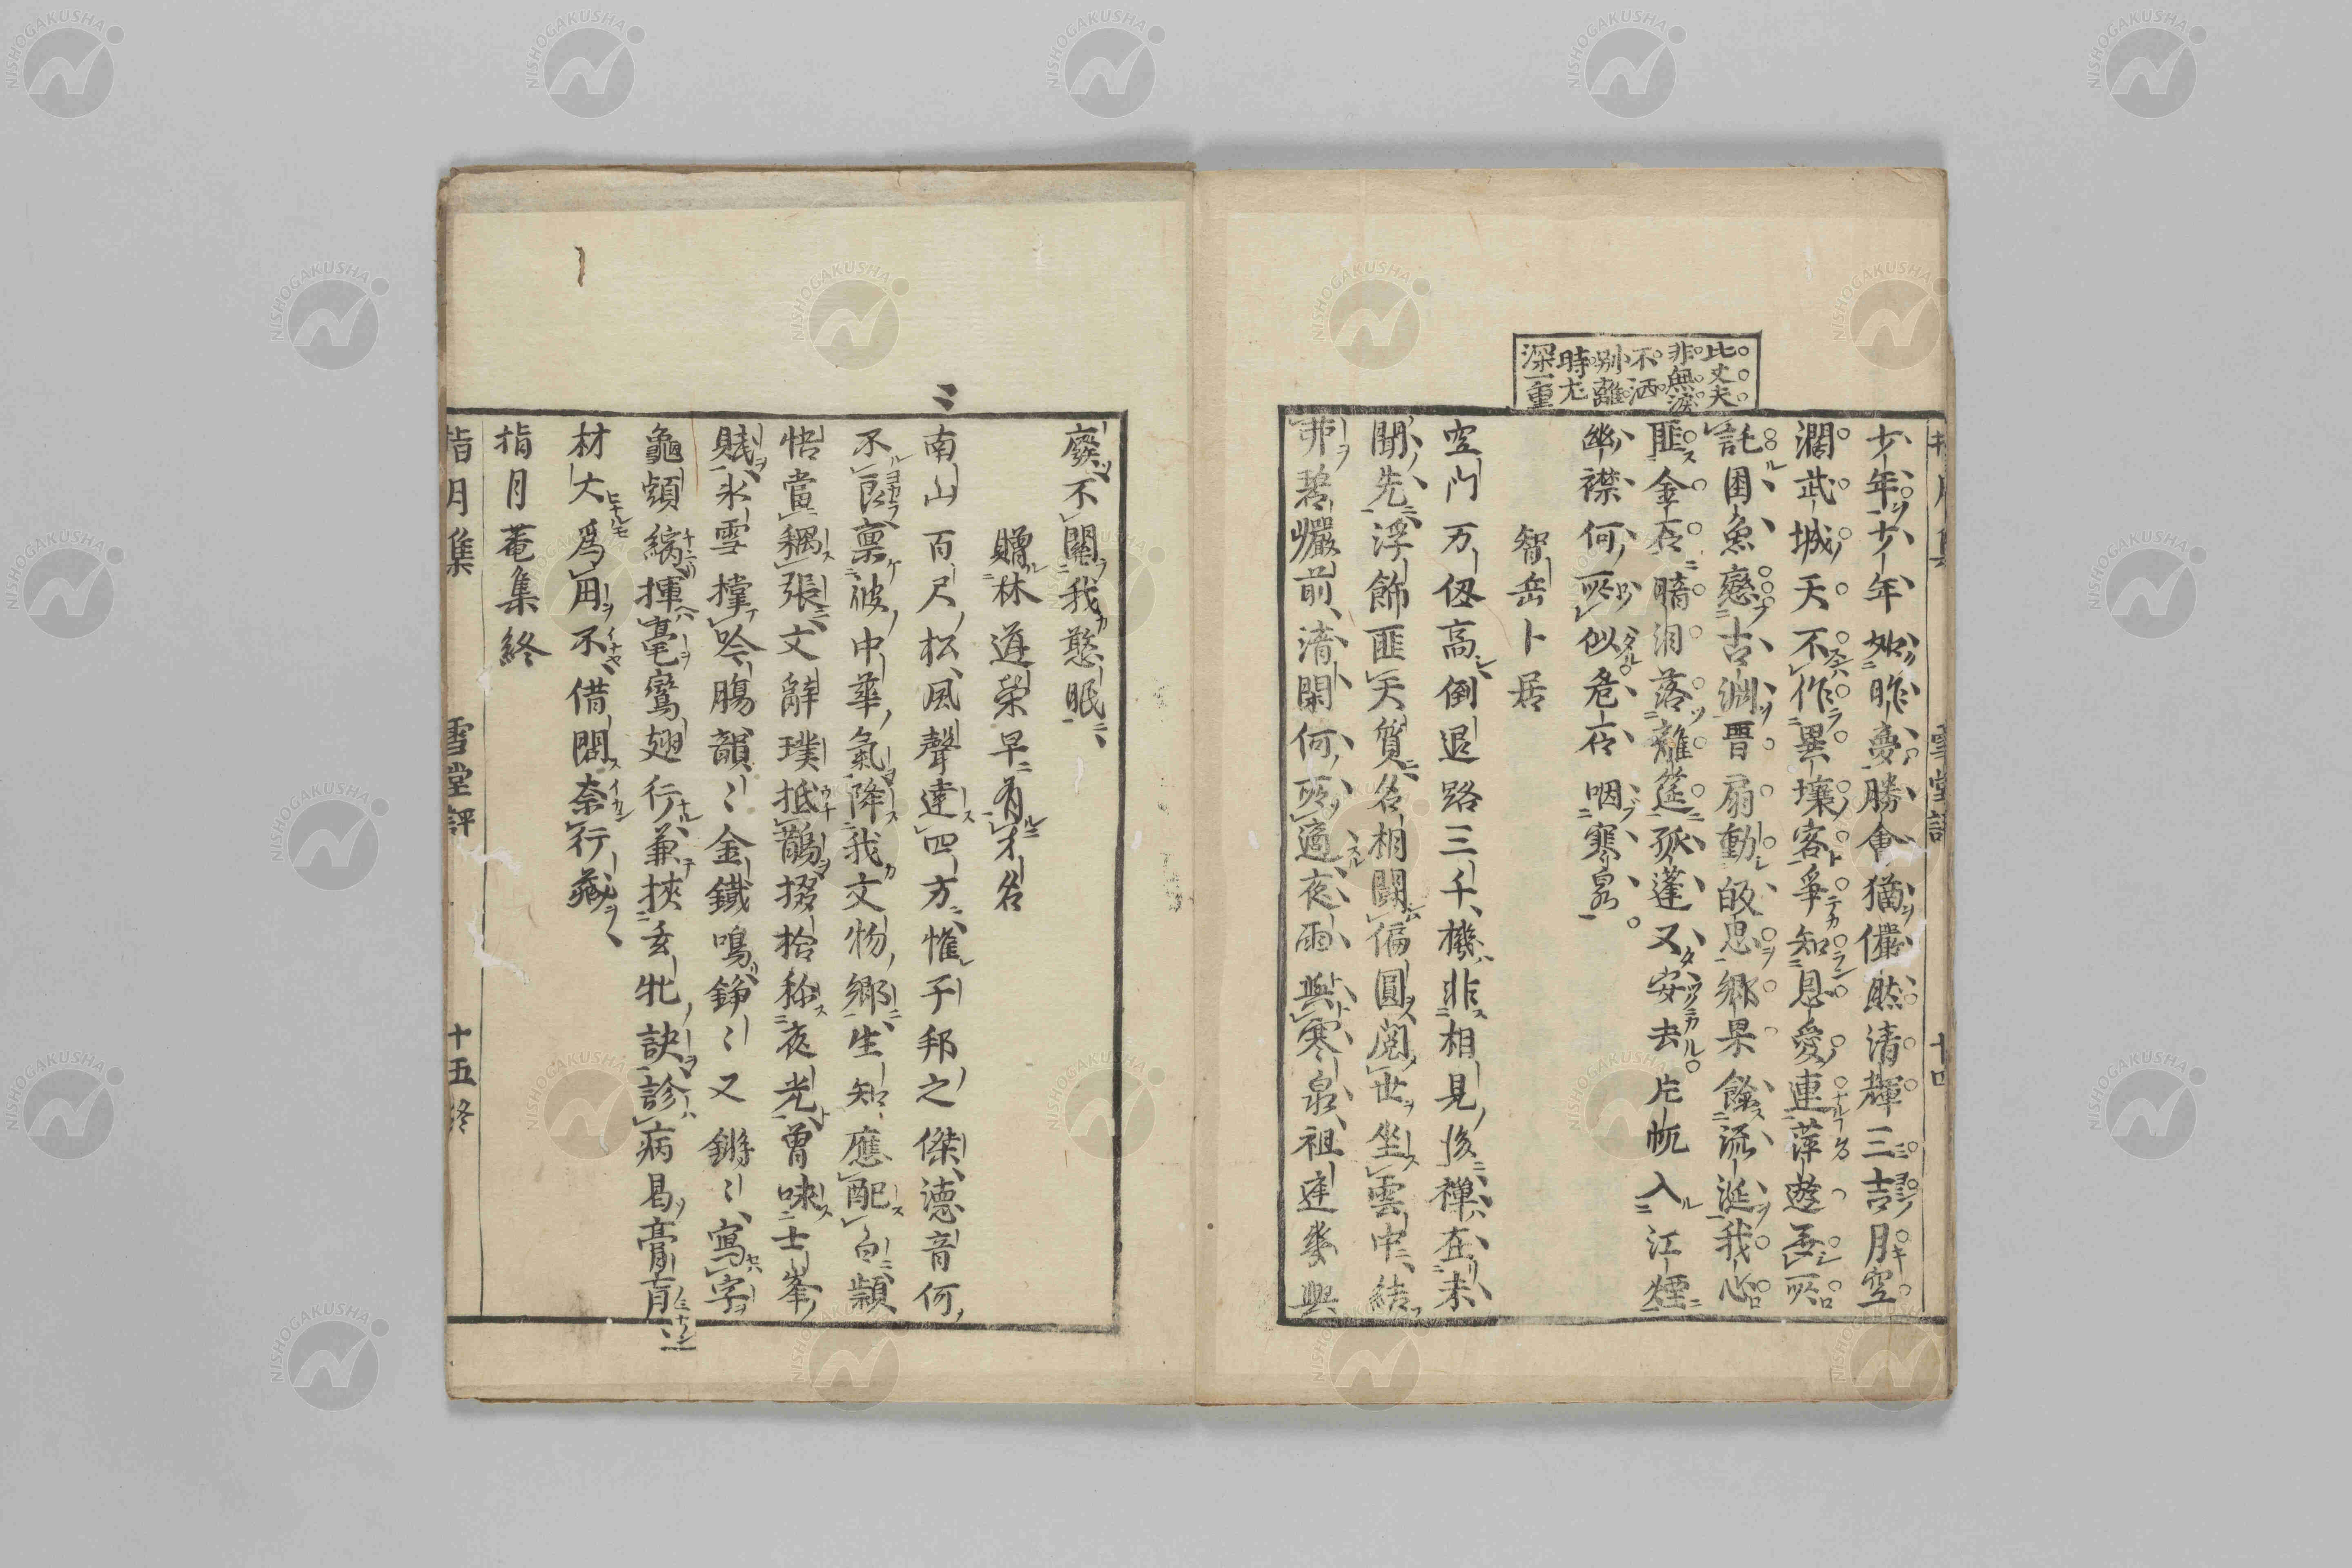 比丈夫
非無涙
不洒
別離
時尤
深一重
少年少年如昨夢勝會猶儼然清輝三吉月空
濶武城天不作異壤客爭知恩愛連萍遊吾所
託困魚戀古淵晋扇動故思郷果餘流涎我心
匪金石暗涙落離筵孤蓬又安去片帆入江煙
幽襟何所似危石咽寒泉
智岳卜居
空門万仭高倒退路三千機非相見後禅在未
聞先浮飾匪天質名相鬪偏圓閲世坐雲中結
茆碧巘前清閑何所適夜雨與寒泉祖庭麥與
廢不關我憨眠
贈林道栄早有才名
南山百尺松風聲達四方惟子邦之傑徳音何
不良禀彼中華氣降我文物郷生知應配白顛
悟當耦張文辭璞抵鵲掇拾称夜光曽味士峯
賎氷雪撑吟膓韻〻金鐵鳴錚〻又鏘〻寫字
龜頭縞揮毫鸞翅行兼挾玄牝訣診病曷膏肓
材大爲用不借問奈行藏
指月菴集終
指月集　雪堂評　十五終